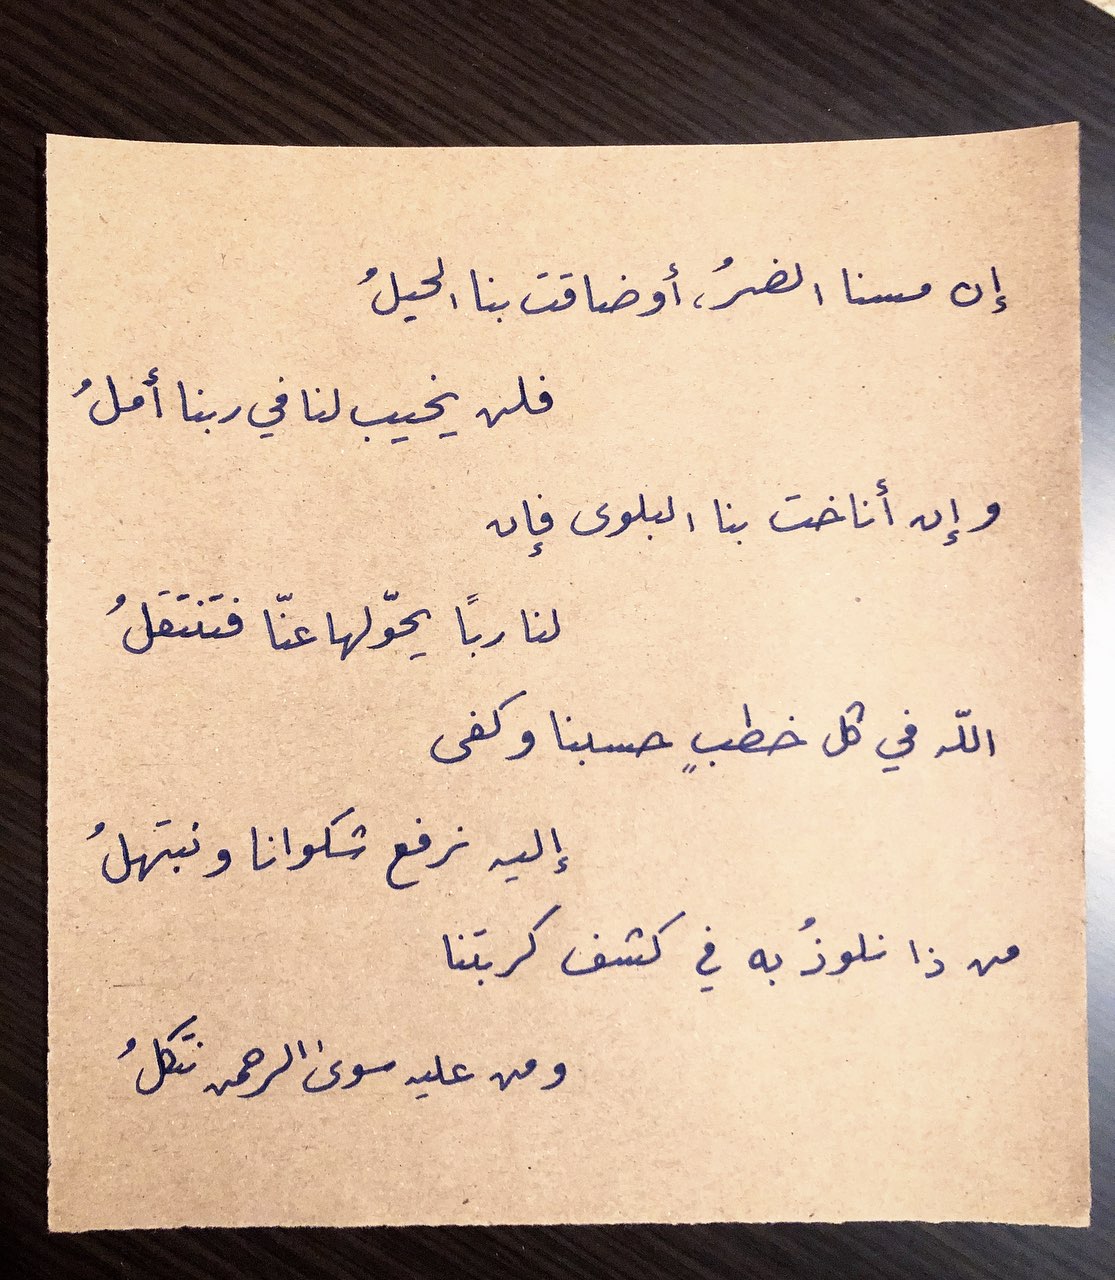 إن مسنا الضرُ، أو ضاقت بنا الحيلُ
فلن يخيب لنا في ربنا أملُ
وإن أناخت بنا البلوى فإن
لنا ربًا يحوّلها عنّا فتنتقلُ
اللّه في كل خطبٍ حسبنا وكفى
إليه نرفع شكوانا ونبتهلُ
من ذا نلوذُ به في كشف كربتنا
ومن عليه سوى الرحمن نتكلُ